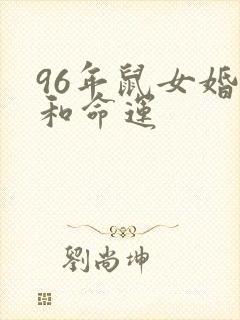 96年鼠女婚
和命運
劉尚坤